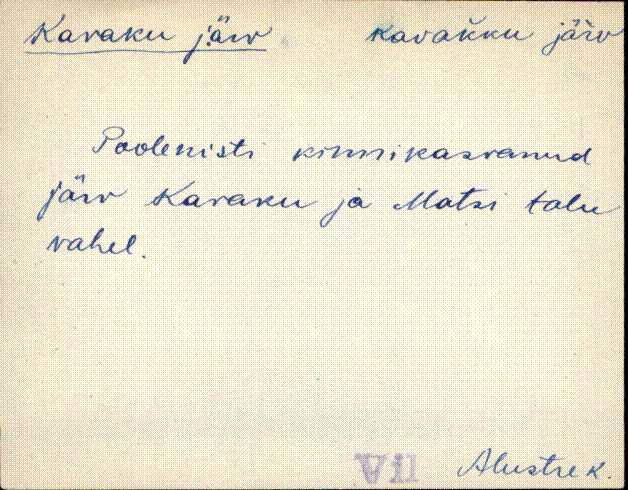 Kavaku järv kavaǩku jäŕv
Poolenisti kinnikasvanud
järv Kavaku ja Matsi talu
vahel.
Vil Alustre k.